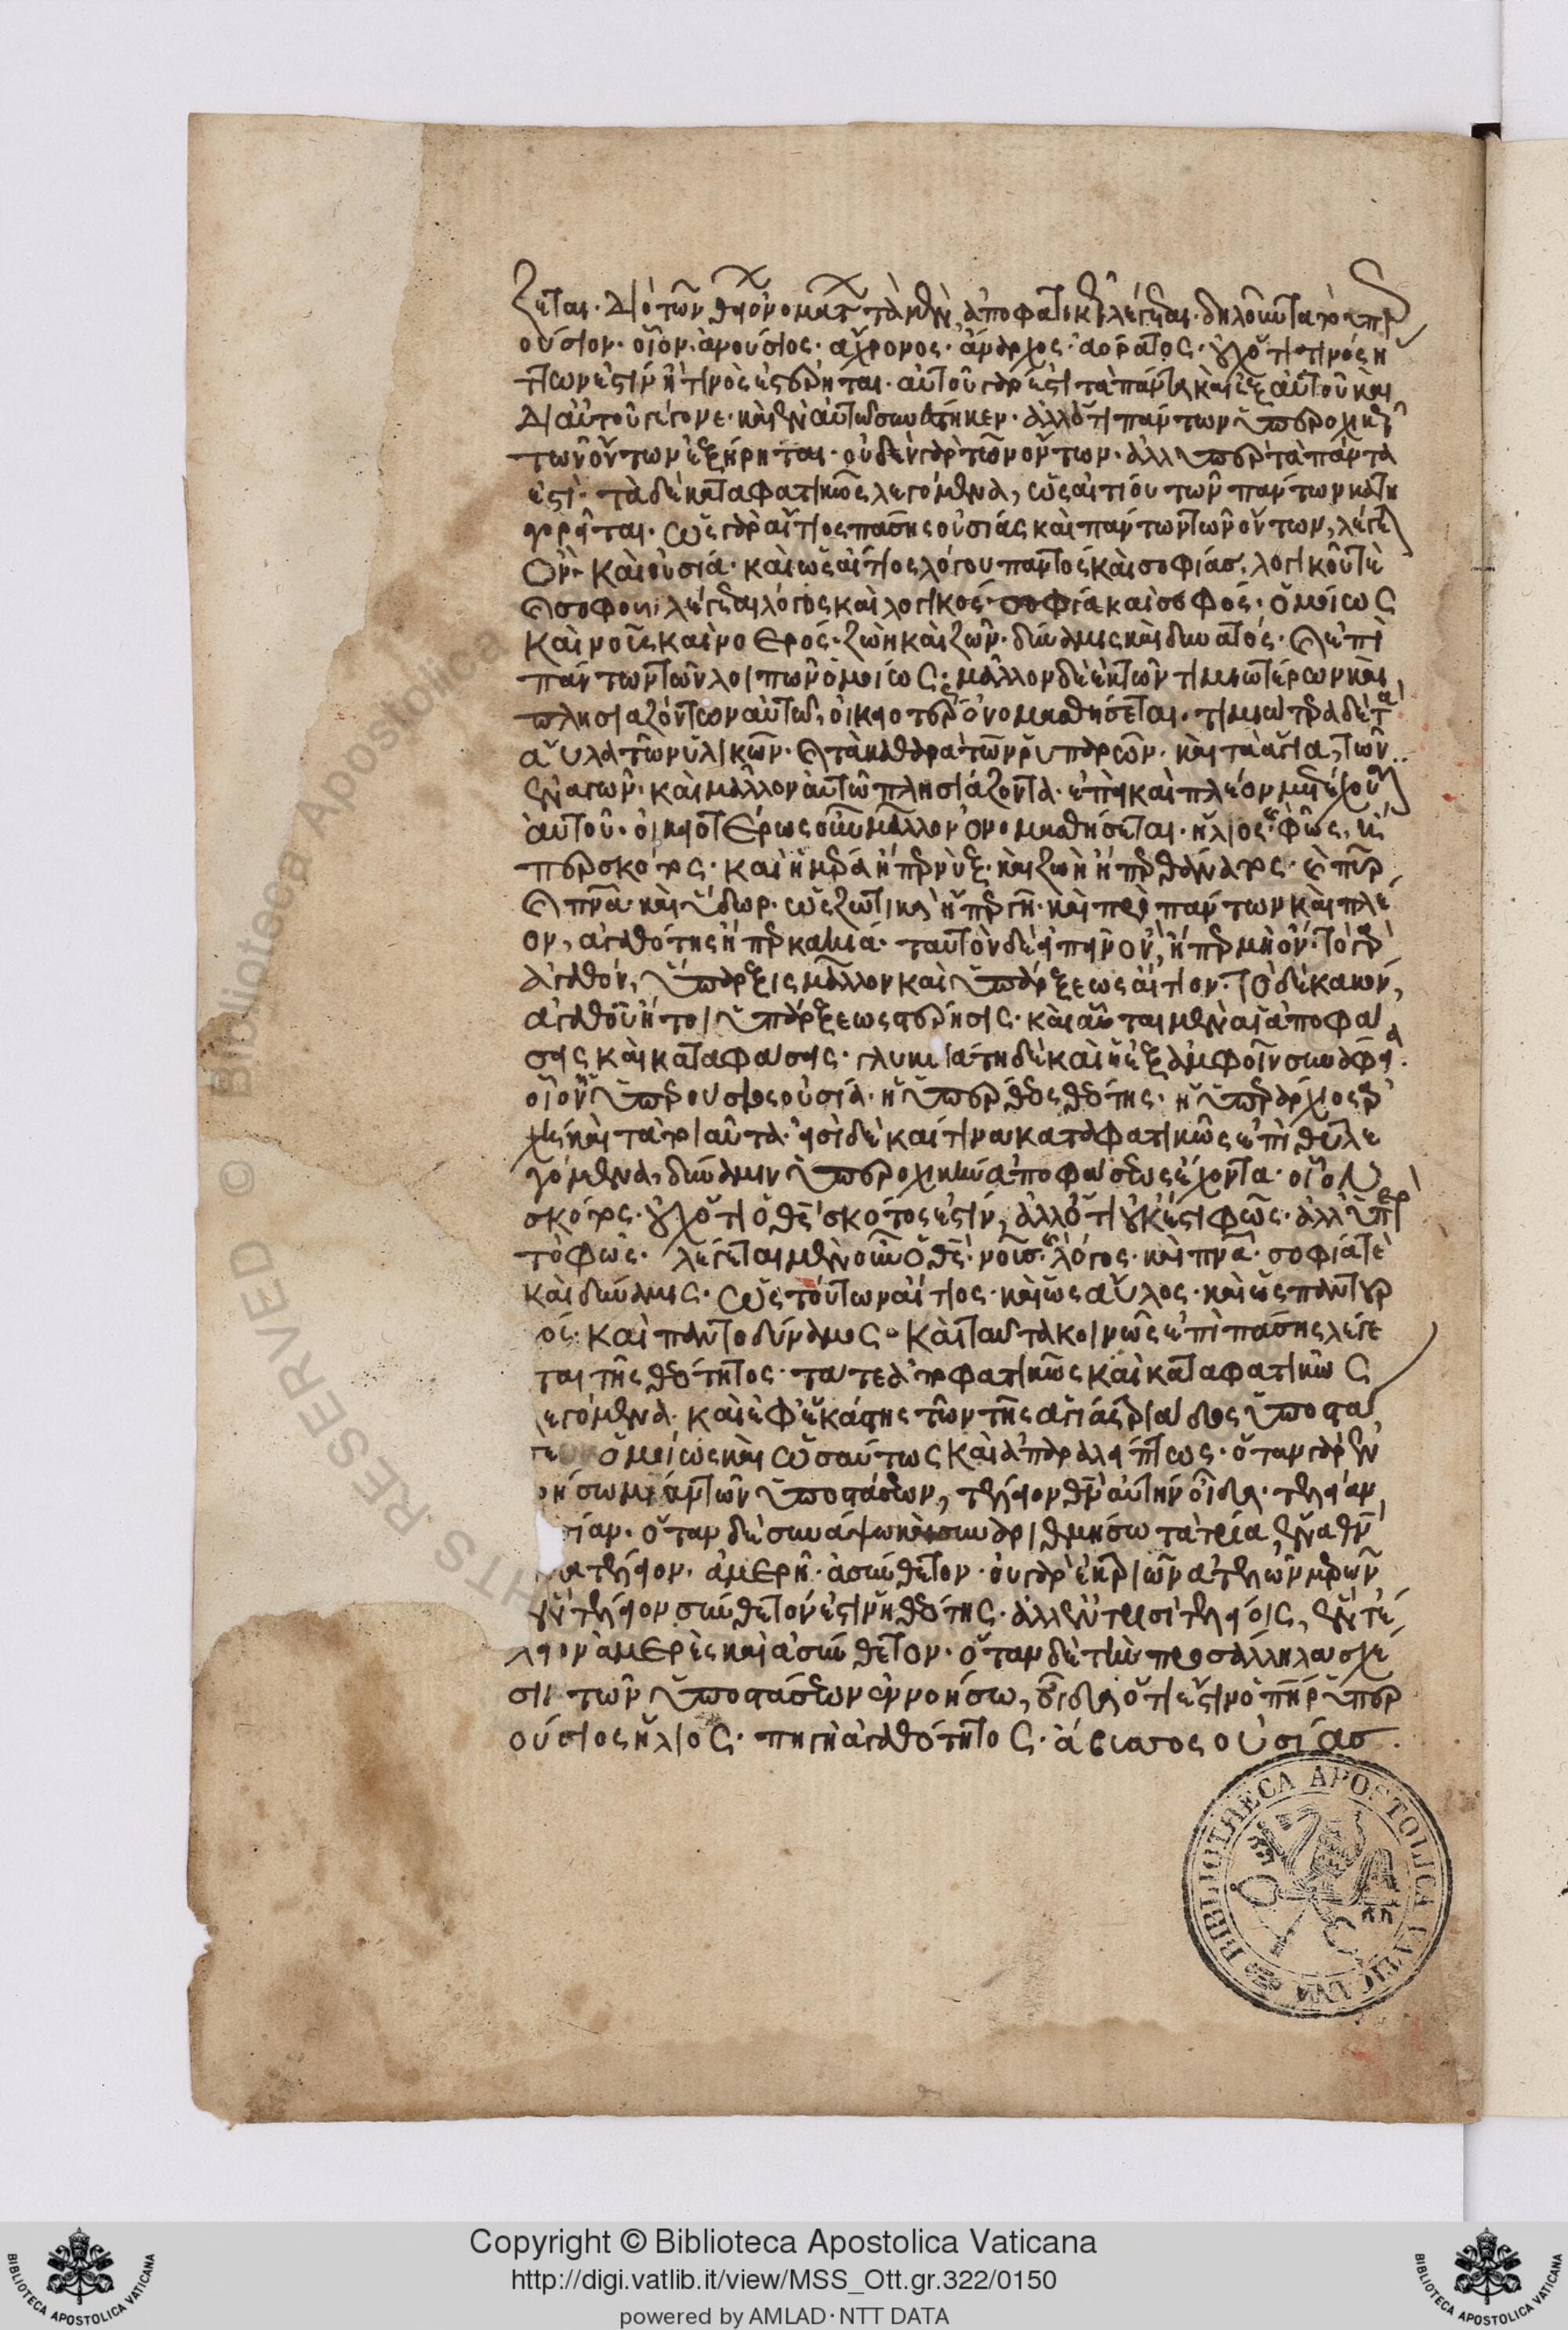 ζεται· Διὸ τῶν θείων ὀνομάτων τὰ μὲν ἀποφατικῶς λέγεται· δηλοῦντα τὸ ὑπερ
ούσιον· οἷον ἀνούσιος· ἄχρονος· ἄναρχος· ἀόρατος· οὐχ ὅτι τινὸς ἥ
ττων ἐστὶν ἤ τινος ἐστέρηται· αὐτοῦ γάρ ἐστι τὰ πάντα καὶ ἐξ αὐτοῦ καὶ
Δι αὐτοῦ γέγονε· καὶ ἐν αὐτῶ συνέστηκεν· ἀλλ ὅτι πάντων ὑπεροχικῶς
τῶν ὄντων ἐξήρηται· οὐδὲν γὰρ τῶν ὄντων· ἀλλ ὑπὲρ τὰ πάντα
ἐστί· τὰ δὲ καταφατικῶς λεγόμενα, ὡς αἰτίου τῶν πάντων κατη
γορεῖται· ὡς γὰρ αἴτιος πάσης οὐσίας καὶ πάντων τῶν ὄντων, λέγεται
Ὢν· καὶ οὐσία· καὶ ὡς αἴτιος λόγου παντός καὶ σοφίας, λογικοῦ τὲ
καὶ σοφοῦ, λέγεται λόγος καὶ λογικός· σοφία καὶ σοφός· ὁμοίως
καὶ νοῦς καὶ νοερός· ζωὴ καὶ ζῶν· δύναμις καὶ δυνατός· καὶ ἐπὶ
πάντων τῶν λοιπῶν ὁμοίως· μᾶλλον δὲ ἐκ τῶν τιμιωτέρων καὶ
πλησιαζόντων αὐτῶ, οἰκειοτέρως ὀνομασθήσεται· τιμιώτερα δὲ τὰ
ἄϋλα τῶν ὑλικῶν· καὶ τὰ καθαρὰ τῶν ῥυπαρῶν· καὶ τὰ ἅγια, τῶν
ἐναγῶν· καὶ μᾶλλον αὐτῶ πλησιάζοντα· ἐπεὶ καὶ πλέον μετέχουσιν
αὐτοῦ· οἰκειοτέρως οὖν μᾶλλον ὀνομασθήσεται· ἥλιος καὶ φῶς, ἤ
περ σκότος· καὶ ἡμέρα ἤπερ νὺξ· καὶ ζωὴ ἤπερ θάνατος· καὶ πῦρ,
καὶ πνεῦμα καὶ ὕδωρ· ὡς ζωτικὰ ἤπερ γῆ· καὶ πρὸ πάντων καὶ πλέ
ον, ἀγαθότης ἤπερ κακία· ταυτὸν δὲ εἰπεῖν ὂν, ἤπερ μὴ ὄν· τὸ γὰρ
ἀγαθὸν, ὕπαρξις μᾶλλον καὶ ὑπάρξεως αἴτιον· Τὸ δὲ κακὸν,
ἀγαθοῦ ἤτοι ὑπάρξεως στέρησις· καὶ αὗται μὲν αἱ ἀποφά
σεις καὶ καταφάσεις· γλυκυτάτη δὲ καὶ ἡ ἐξ ἀμφοῖν συνάφεια·
οἷον ἡ ὑπερούσιος οὐσία· ἡ ὑπέρθεος θεότης· ἡ ὑπεράρχιος ἀρ
χή· καὶ τὰ τοιαῦτα· εἰσὶ δὲ καί τινα καταφατικῶς ἐπὶ θεοῦ λε
γόμενα, δύναμιν ὑπεροχικῆς ἀποφάσεως ἔχοντα· οἷον
σκότος· οὐχ ὅτι ὁ θεὸς σκότος ἐστὶν, ἀλλ ὅτι οὐκ ἔστι φῶς· ἀλλ ὑπὲρ
τὸ φῶς· λέγεται μὲν οὖν ὁ θεὸς· νοῦς· καὶ λόγος· καὶ πνεῦμα· σοφία τὲ
καὶ δύναμις· ὡς τούτων αἴτιος· καὶ ὡς ἄϋλος· καὶ ὡς παντουρ
ός· καὶ παντοδύναμος· καὶ ταῦτα κοινῶς ἐπὶ πάσης λέγε
ται τῆς θεότητος· τά τε ἀποφατικῶς καὶ καταφατικῶς
λεγόμενα· καὶ ἐφ ἑκάστης τῶν τῆς ἁγίας τριάδος ὑποστά
σε ὁμοίως καὶ ὡσαύτως καὶ ἀπαραλείπτως· ὅταν γὰρ ἐν
οήσω μίαν τῶν ὑποστάσεων, τέλειον θεὸν αὐτὴν οἶδα· τελείαν
σίαν· ὅταν δὲ συνάψω καὶ συναριθμήσω τὰ τρία, ἕνα θεὸν
τέλειον, ἀμερῆ· ἀσύνθετον· οὐ γὰρ ἐκ τριῶν ἀτελῶν μερῶν
ἓν τέλειον σύνθετόν ἐστιν ἡ θεότης· ἀλλ ἐν τρισὶ τελείοις, ἓν τέ
λειον ἀμερὲς καὶ ἀσύνθετον· ὅταν δὲ τὴν πρὸς ἄλληλα σχέ
σιν τῶν ὑποστάσεων ἐννοήσω, οἶδα ὅτι ἐστὶν ὁ πατὴρ ὑπερ
ούσιος ἥλιος· πηγὴ ἀγαθότητος· ἄβυσσος οὐσίας·
© Biblioteca Apostolica
RIGHTS RESERVED
BIBLIOTHECA APOSTOLICA VATICANA
Copyright © Biblioteca Apostolica Vaticana
http://digi.vatlib.it/view/MSS_Ott.gr.322/0150
powered by AMLAD·NTT DATA
BIBLIOTECA APOSTOLICA VATICANA
BIBLIOTECA APOSTOLICA VATICANA